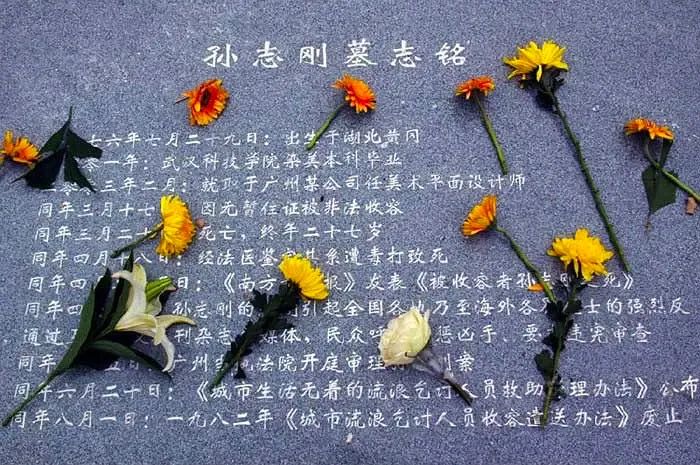 孙志刚墓志铭
七六年七月二十九日：出生于湖北黄冈
零一年：武汉科技学院染美本科毕业
二零零三年二月：就职于广州某公司任美术平面设计师
同年三月十七 因无暂住证被非法收容
同年三月二十 死亡，终年二十七岁
同年四月十八日：经法医鉴定其系遭毒打致死
同年四月二 五日：《南方 报》发表《被收容者孙志刚之死》
同年四 孙志刚的 引起全国各地乃至海外各 士的强烈反
，通过 刊杂志 媒体，民众呼 惩凶手、要 违宪审查
同年 五日 广州 法院开庭审理 刚案
同年六月二十日：《城市生活无着的流浪乞讨人员救助管理办法》公布
同年八月一日：一九八二年《城市流浪乞讨人员收容遣送办法》废止